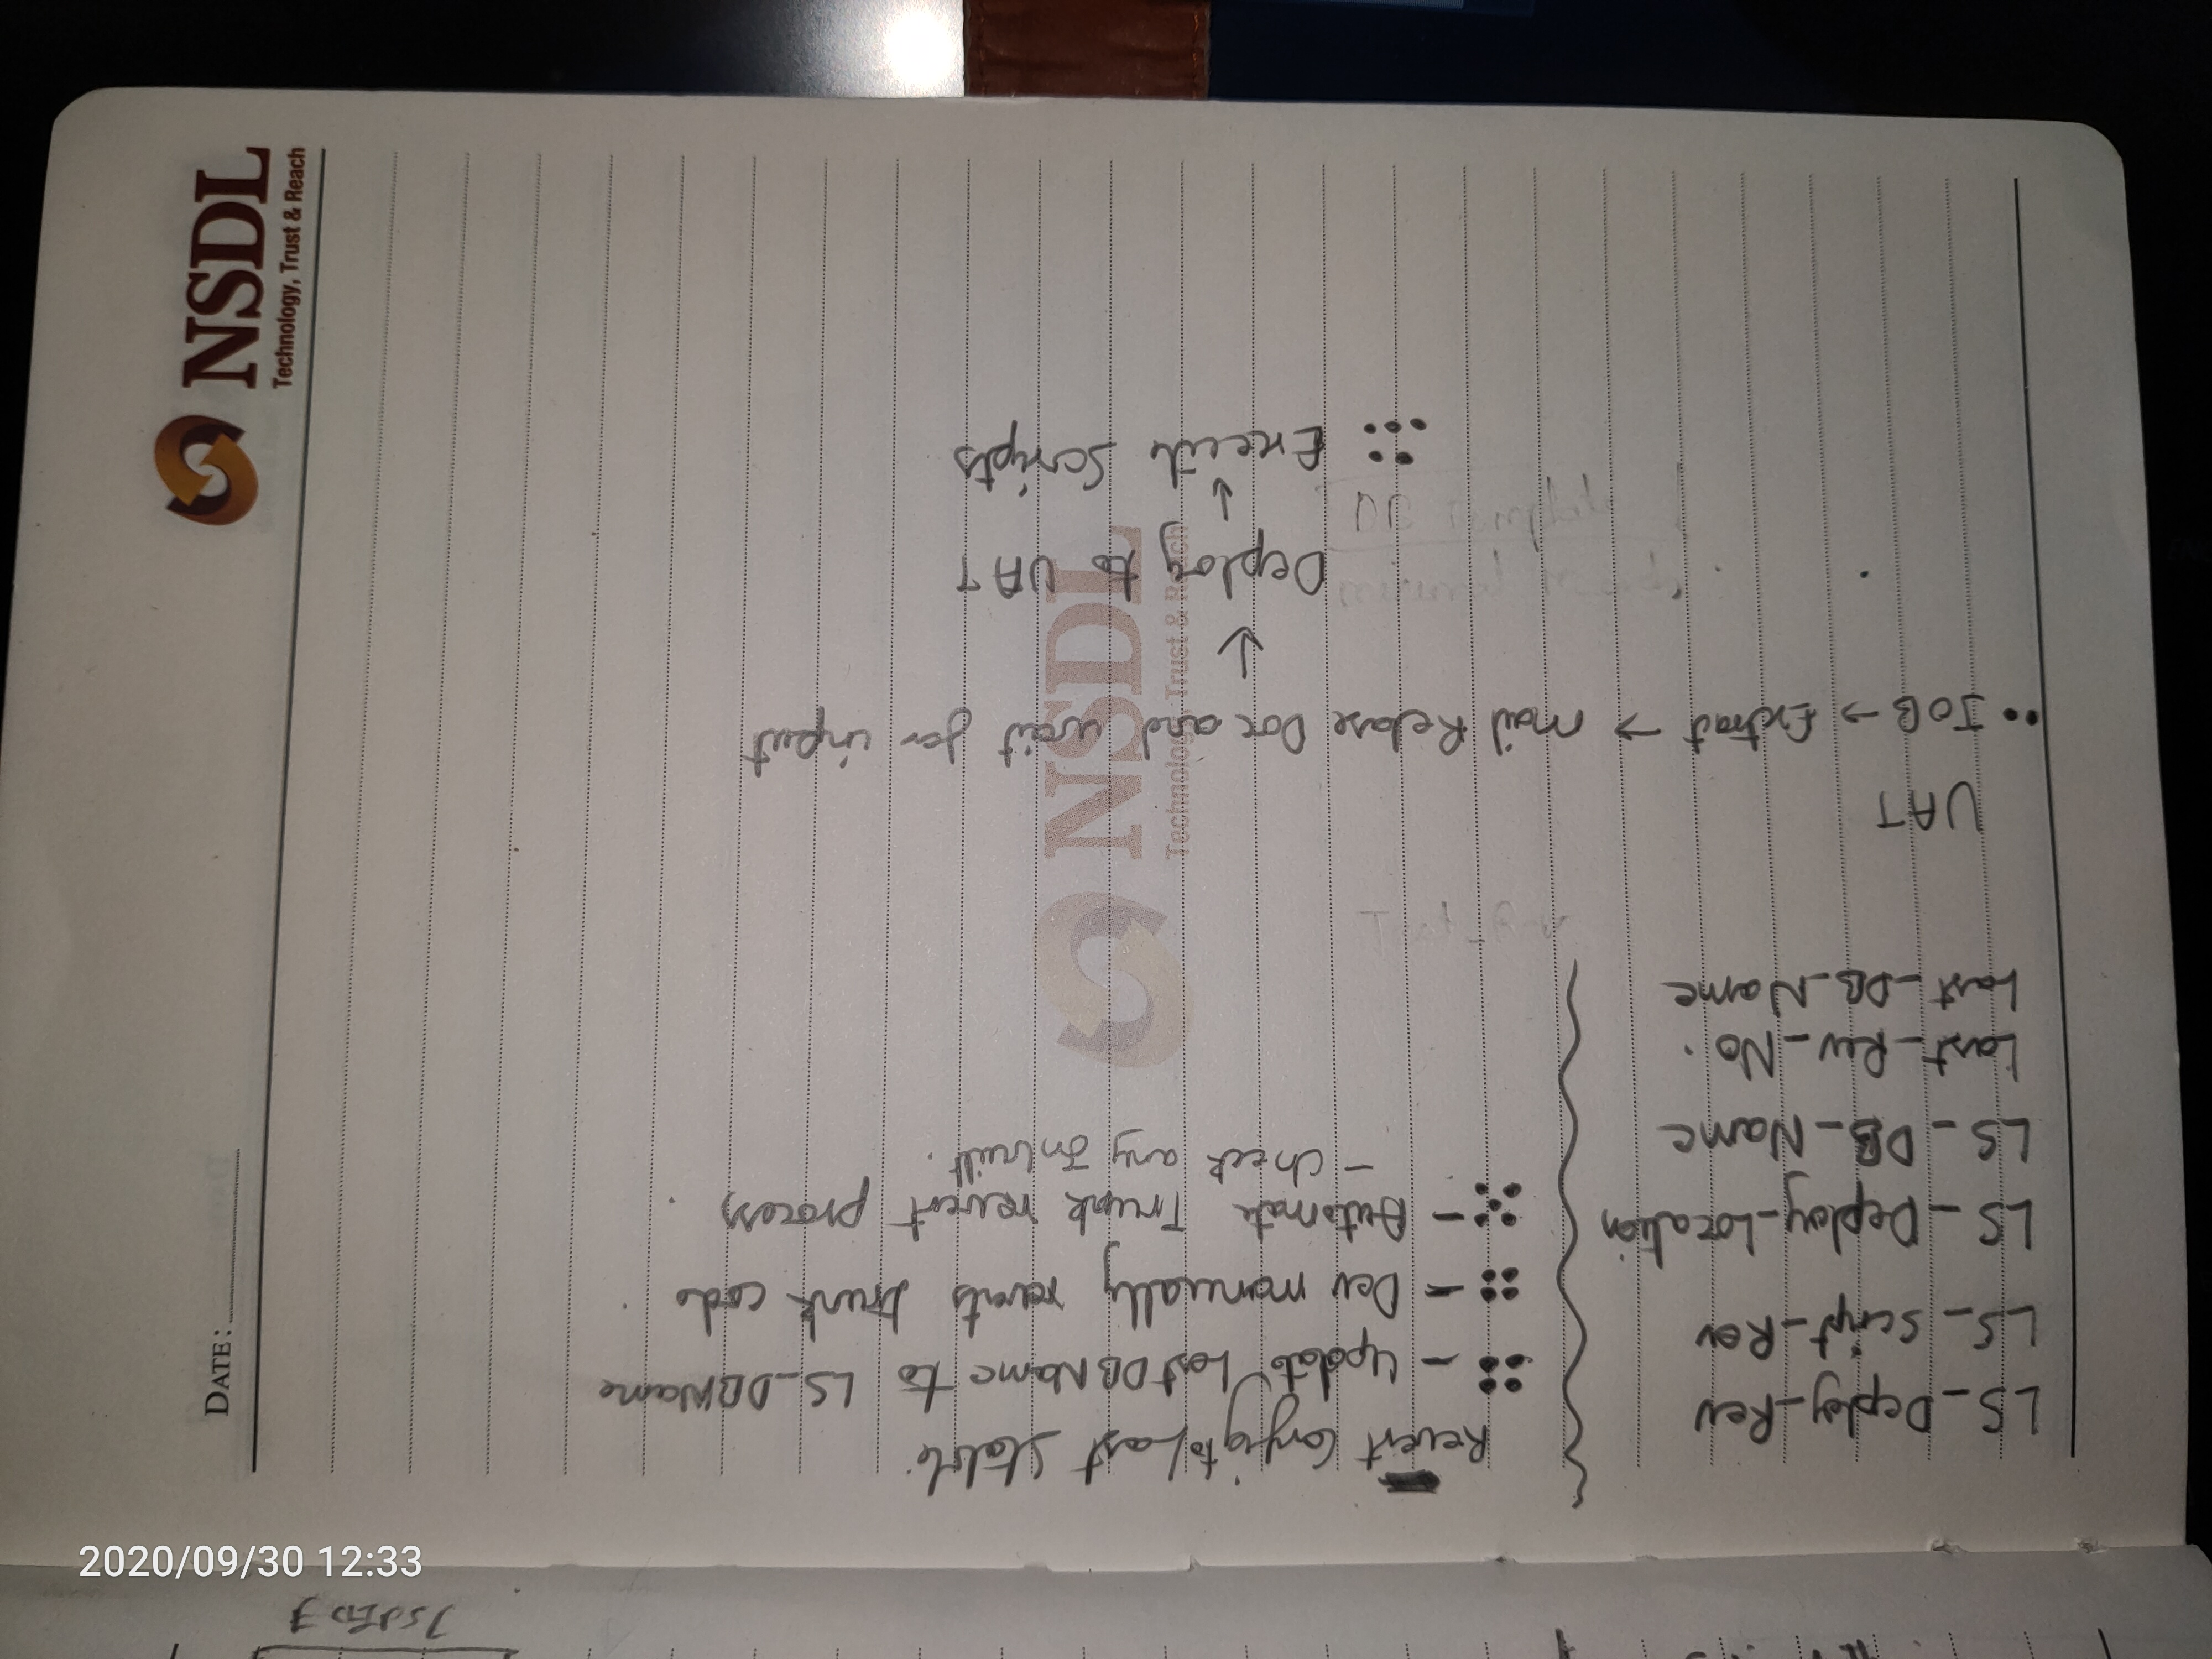 2020/09/30 12:33
LS_Deploy_Rev
LS_Script_Rev
LS_Deploy_Location
LS_DB_Name
Last_Rev_No.
Last_DB_Name
Revert Config to Last Stable
- Update LastDBName to LS_DBName
- Dev manually reverts trunk code
- Automate Trunk revert process
- Check any Inbuilt.
UAT
JOB → Extract → mail Relase Doc and wait for input
↓
Deploy to UAT
↓
Execute Scripts
NSDL
Technology, Trust & Reach
DATE:
NSDL
Technology, Trust & Reach